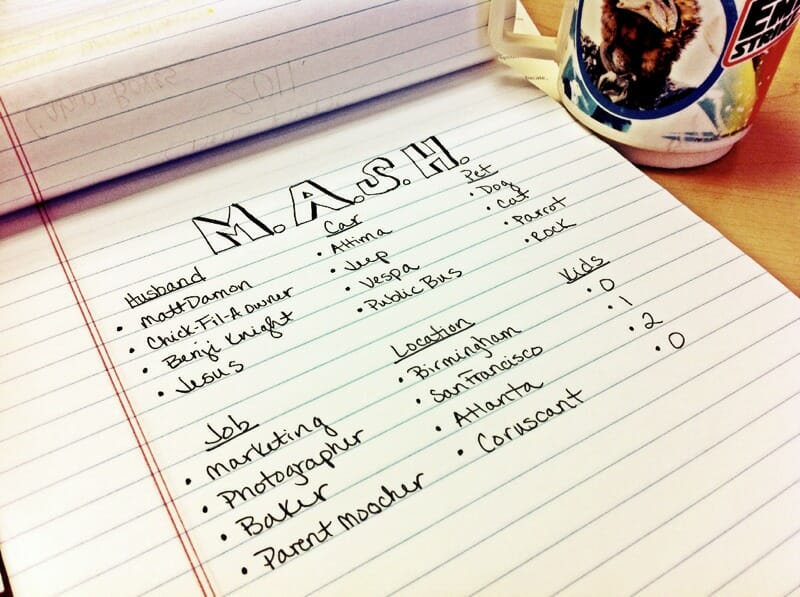 M.A.S.H.
Husband
• Matt Damon
• Chick-Fil-A owner
• Benji Knight
• Jesus
Car
• Altima
• Jeep
• Vespa
• Public Bus
Pet
• Dog
• Cat
• Parrot
• Rock
Job
• Marketing
• Photographer
• Baker
• Parent Moocher
Location
• Birmingham
• San Francisco
• Atlanta
• Coruscant
Kids
• 0
• 1
• 2
• 0
2011